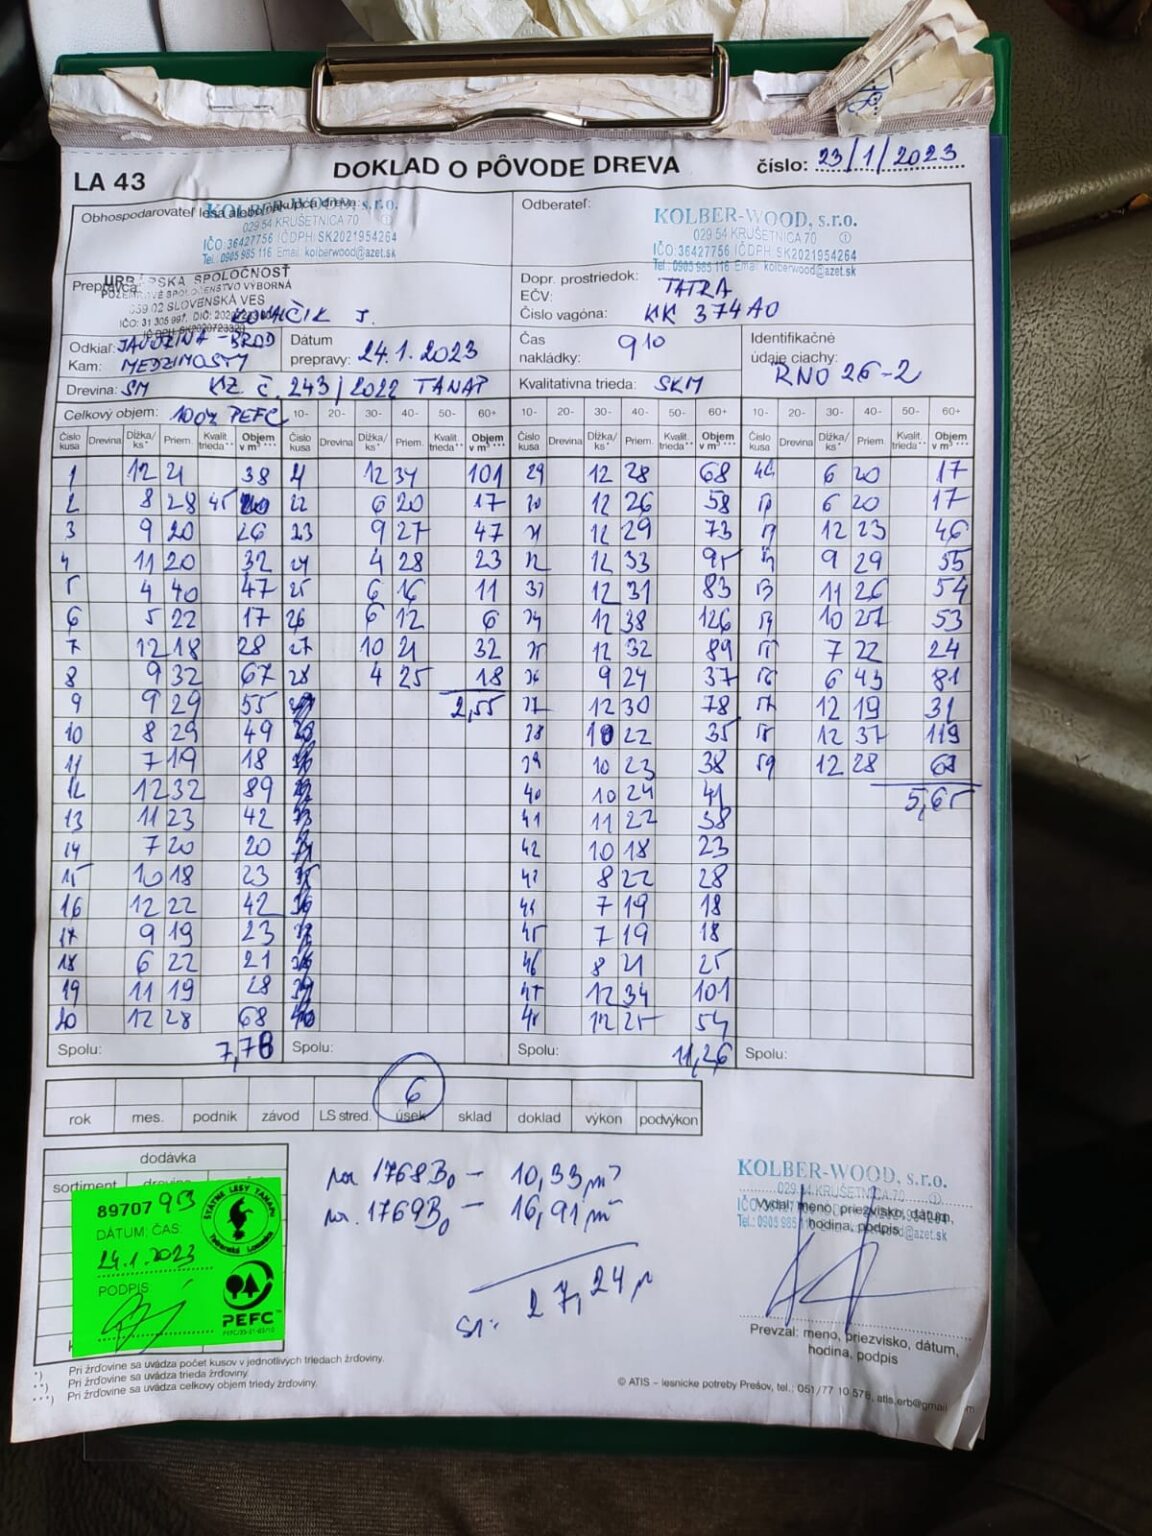 DOKLAD O PÔVODE DREVA
číslo: 23/1/2023
LA 43
Obhospodarovateľ lesa alebo nákupca dreva:
KOLBER-WOOD, s.r.o.
029 54 KRUŠETNICA 70
IČO:36427756 IČDPH:SK2021954264
Tel.:0905 985 116 Email: kolberwood@azet.sk
Odberateľ:
KOLBER-WOOD, s.r.o.
029 54 KRUŠETNICA 70
IČO:36427756 IČDPH:SK2021954264
Tel.:0905 985 116 Email: kolberwood@azet.sk
Prepravca:
SPOLOČNOSŤ
SLOVENSKÁ VES
Dopr. prostriedok: TATRA
EČV:
Číslo vagóna: KK 374AO
Odkiaľ: JAVORINA - BROD
Kam: MEDZIMOSTY
Dátum prepravy: 24.1.2023
Čas nakládky: 910
Identifikačné údaje ciachy: RNO 26-2
Drevina: SM KZ č. 243/2022 TANAP
Kvalitatívna trieda: SKM
Celkový objem: 100% PEFC
10- 20- 30- 40- 50- 60+ 10- 20- 30- 40- 50- 60+ 10- 20- 30- 40- 50- 60+
Číslo kusa Drevina Dĺžka/ks* Priem. Kvalit. trieda** Objem v m³*** Číslo kusa Drevina Dĺžka/ks* Priem. Kvalit. trieda** Objem v m³*** Číslo kusa Drevina Dĺžka/ks* Priem. Kvalit. trieda** Objem v m³*** Číslo kusa Drevina Dĺžka/ks* Priem. Kvalit. trieda** Objem v m³***
1 12 21 38 12 34 101 29 12 28 68 6 20 17
2 8 28 45 22 6 20 17 30 12 26 58 6 20 17
3 9 20 26 23 9 27 47 31 12 29 73 12 23 46
4 11 20 32 24 4 28 23 32 12 33 95 9 29 55
5 4 40 47 25 6 16 11 33 12 31 83 53 11 26 54
6 5 22 17 26 6 12 6 34 12 38 126 54 10 27 53
7 12 18 28 27 10 21 32 35 12 32 89 55 7 22 24
8 9 32 67 28 4 25 18 36 9 24 37 56 6 43 81
9 9 29 55 2,55 37 12 30 78 57 12 19 31
10 8 29 49 38 10 22 35 58 12 37 119
11 7 19 18 39 10 23 38 59 12 28 68
12 12 32 89 40 10 24 41 5,65
13 11 23 42 41 11 22 38
14 7 20 20 42 10 18 23
15 10 18 23 43 8 22 28
16 12 22 42 44 7 19 18
17 9 19 23 45 7 19 18
18 6 22 21 46 8 21 25
19 11 19 28 47 12 34 101
20 12 28 68 48 12 25 54
Spolu: 7,78 Spolu: Spolu: 11,26 Spolu:
6
rok mes. podnik závod LS stred. úsek sklad doklad výkon podvýkon
dodávka
sortiment
89707 913
DÁTUM, ČAS
24.1.2023
PODPIS
ŠTÁTNE LESY TANAPU
Tatranská Lomnica
PEFC
1768B0 - 10,33 m³
1769B0 - 16,91 m³
27,24
KOLBER-WOOD, s.r.o.
029 54 KRUŠETNICA 70
Vydal: meno, priezvisko, dátum,
hodina, podpis
Prevzal: meno, priezvisko, dátum,
hodina, podpis
*) Pri žrďovine sa uvádza počet kusov v jednotlivých triedach žrďoviny.
**) Pri žrďovine sa uvádza trieda žrďoviny.
***) Pri žrďovine sa uvádza celkový objem triedy žrďoviny.
© ATIS – lesnícke potreby Prešov, tel.: 051/77 10 578,